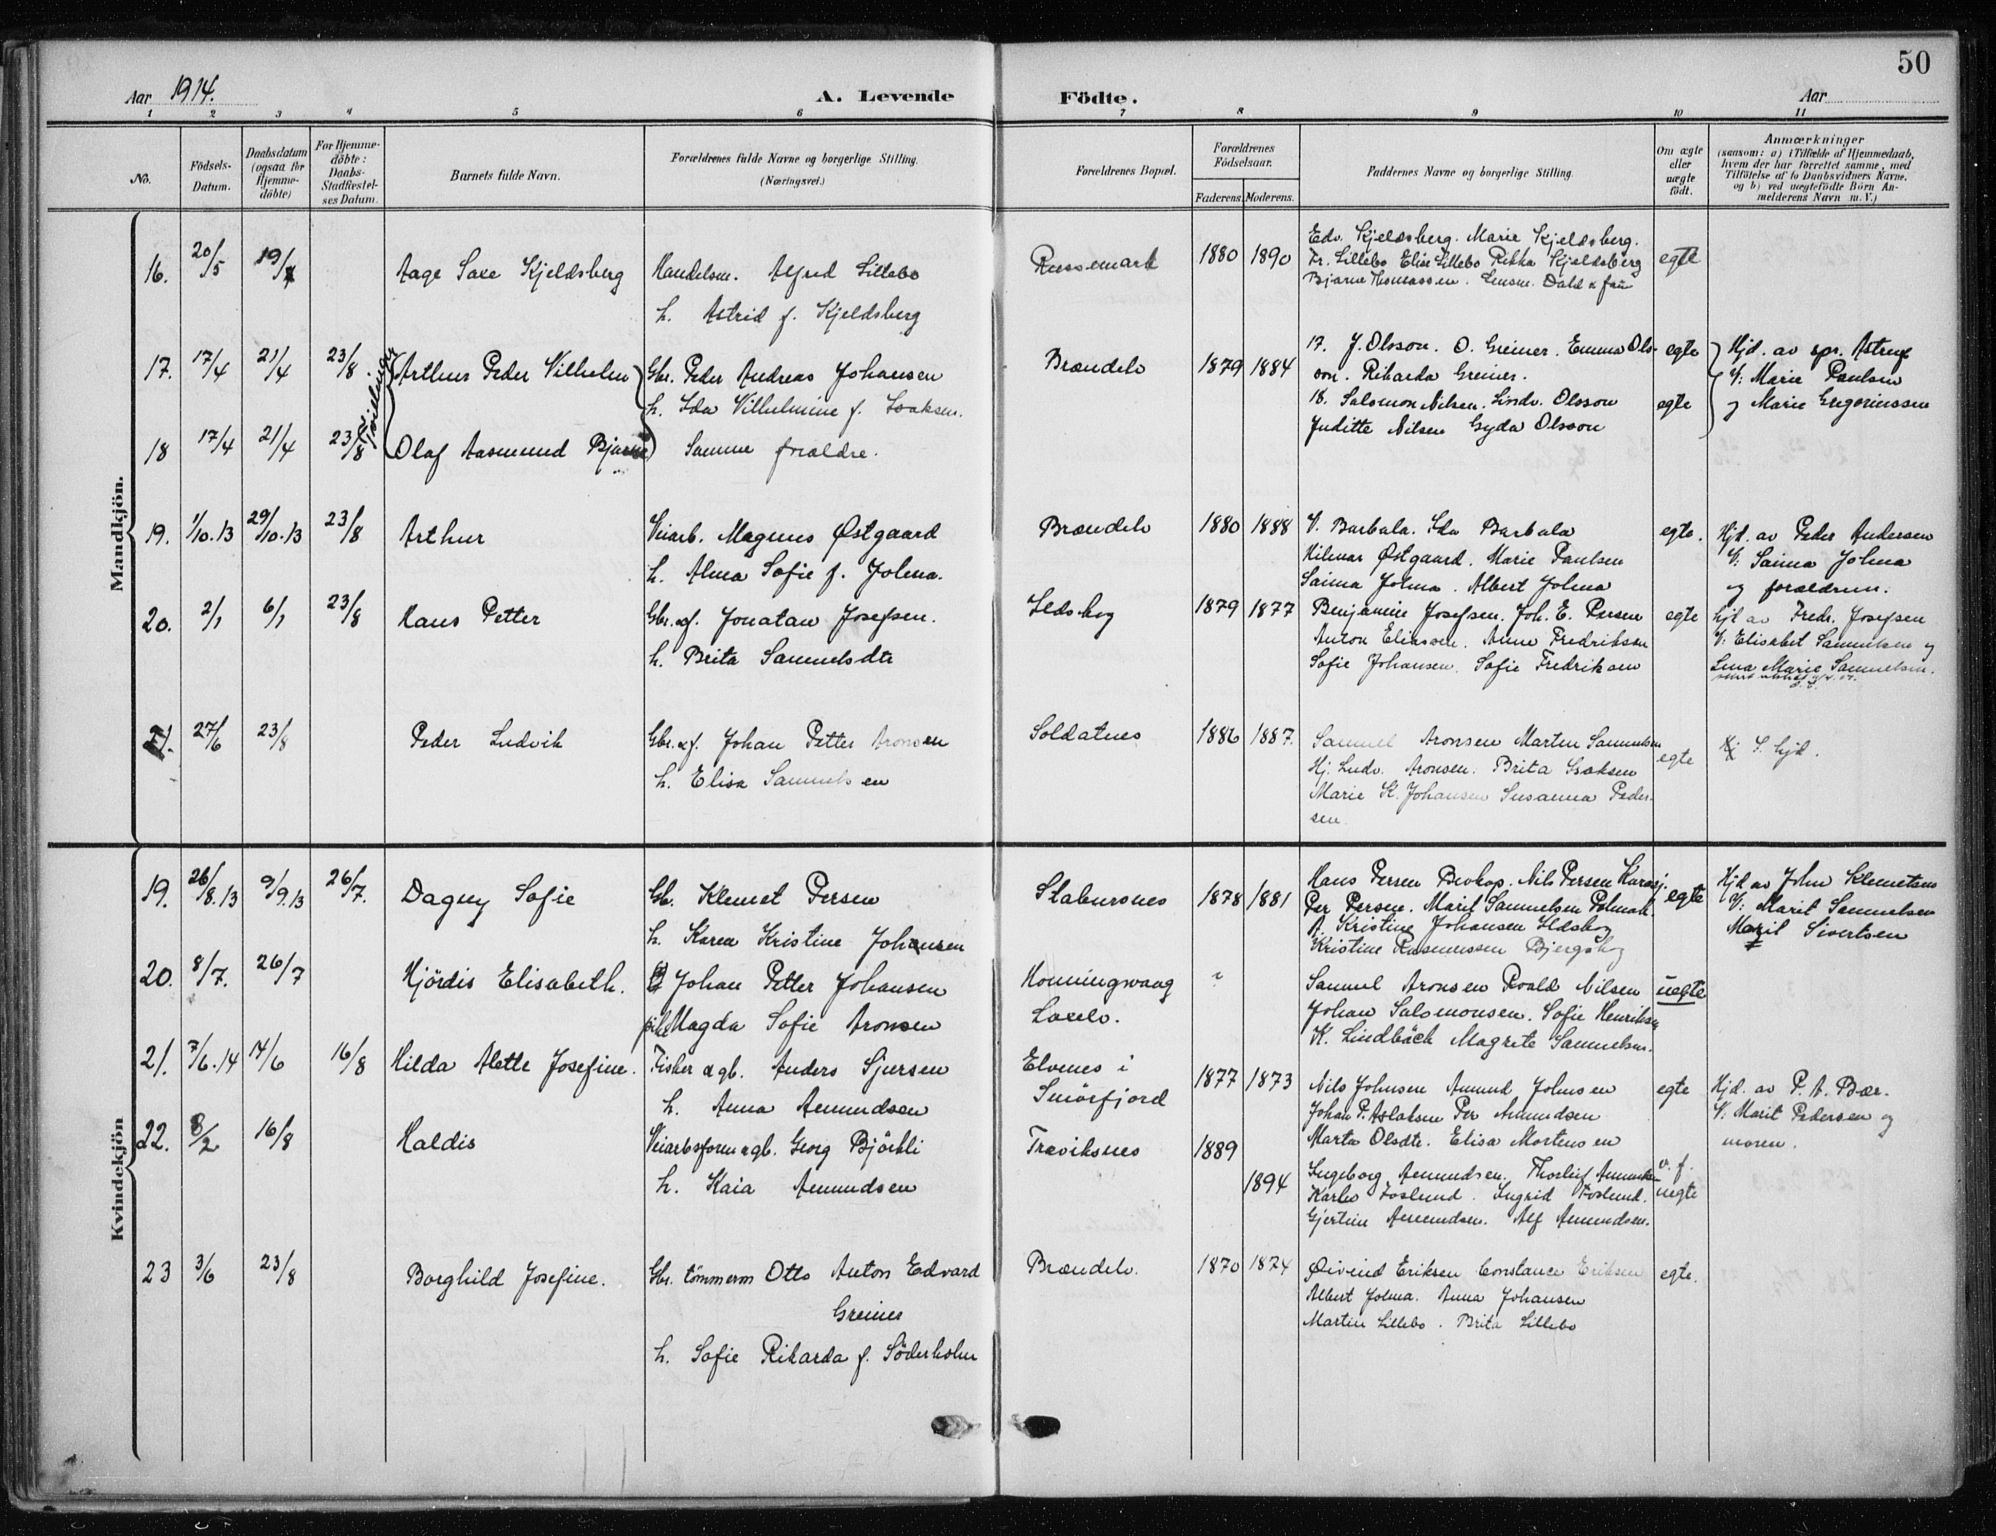 50
Aar 1914.
A. Levende Födte.
Aar
1 2 3 4 5 6 7 8 9 10 11
No.
Födsels-
Datum.
Daabsdatum
(ogsaa for
Hjemme-
döbte)
For Hjemme-
döbte:
Daabs-
Stadfæstel-
ses Datum.
Barnets fulde Navn.
Forældrenes fulde Navne og borgerlige Stilling.
(Næringsvei.)
Forældrenes Bopæl.
Forældrenes
Födselsaar.
Faderens. Moderens.
Faddernes Navne og borgerlige Stilling.
Om ægte
eller
uægte
födt.
Anmærkninger
(saasom: a) i Tilfælde af Hjemmedaab,
hvem der har forrettet samme, med
Tilföielse af to Daabsvidners Navne,
og b) ved uægtefödte Börn An-
melderens Navn m. V.)
Mandkjön.
16. 20/5 19/ Aage Saxe Kjeldsberg
Handelsm. Alfred Lillebo
h. Astrid f. Kjeldsberg
Russemark 1880 1890
Edv. Kjeldsberg. Marie Kjeldsberg.
Fr. Lillebo Elise Lillebo Rikka Kjeldsberg
Bjarne Thomassen. Lensm. Dahl & fru
egte
17. 17/4 21/4 23/8 Tvillinger Arthur Peder Vilhelm
Gbr. Peder Andreas Johansen
h. Ida Vilhelmine f. Isaksen.
Brændelv 1879 1884
17. J. Olsson. O. Greiner. Emma Ols-
son. Rikarda Greiner.
egte
Hjd. av spr. Astrup
V: Marie Paulsen
og Marie Gregoriussen
18 17/4 21/4 23/8 Olaf Aasmund Bjarne
Samme forældre.
18. Salomon Nilsen. Lindv. Olsson
Juditte Nilsen Gyda Olsson
egte
19. 1/10.13 29/10.13 23/8 Arthur
Veiarb. Magnus Østgaard
h. Alma Sofie f. Jolma.
Brændelv 1880 1888
V. Barbala. Ida Barbala
Hilmar Østgaard. Marie Paulsen
Saima Jolma. Albert Jolma
egte.
Hjd. av Peder Andersen
V: Saima Jolma
og forældrene.
20. 2/1 6/1 23/8 Hans Petter
Gbr. & f. Jonatan Josefsen.
h. Brita Samuelsdtr
Ildskog 1879 1877
Benjamine Josefsen. Joh. E. Persen
Anton Eliassen. Anne Fredriksen
Sofie Johansen. Sofie Fredriksen
egte
hjd av Fredr. Josefsen
V: Elisabet Samuelsen og
Lena Marie Samuelsen.
21. 27/6 23/8 Peder Ludvik
Gbr. & f. Johan Petter Aronsen
h. Elisa Samuelsen
Soldatnes 1886 1887.
Samuel Aronsen Martin Samuelsen
Hj. Ludv. Aronsen. Brita Isaksen
Marie K. Johansen Susanna Peder-
sen.
egte
I. hjd.
Kvindekjön
19. 26/8.13 9/9.13 26/7. Dagny Sofie
Gb. Klemet Persen
h. Karen Kristine Johansen
Stabursnes 1878 1881
Hans Persen Bevkop. Nils Persen Karasj.
Per Persen. Marit Samuelsen Polmak.
A. Kristine Johansen Ildskog
Kristine Rasmussen Bjergskog
egte
Hjd av John Klemetsen
V: Marit Samuelsen
Marit Sivertsen
20. 8/7. 26/7 Hjördis Elisabeth.
Johan Petter Johansen
pike Magda Sofie Aronsen
Honningsvaag
Laxelv.
Samuel Aronsen Roald Nilsen
Johan Salomonsen. Sofie Henriksen
K. Lindbäck Magrete Samuelsen.
uegte
21. 7/6.14 14/6 16/8 Hilda Alette Josefine.
Fisker & gb. Anders Sjursen
h. Anna Amundsen
Elvenes i
Smörfjord
1877 1873
Nils Johnsen Amund Johnsen
Johan P. Aslaksen Per Amundsen
Marta Olsdtr. Elisa Mortensen
egte
Hjd. av P. A. Bær.
V. Marit Pedersen og
moren.
22. 8/2 16/8 Haldis
Veiarbsform & gb. Georg Björkli
h. Kaia Amundsen
Træviksnes 1889 1894
Ingeborg Amundsen. Thorleif Amundsen
Karlo Foslund. Ingrid Foslund.
Gjertine Amundsen. Alf Amundsen.
v. f.
uegte
23 3/6 23/8 Borghild Josefine.
Gbr. tömmerm Otto Anton Edvard
Greiner
h. Sofie Rikarda f. Söderholm
Brændelv. 1870 1874
Øivind Eriksen Constance Eriksen
Albert Jolma. Anna Johansen
Martin Lillebo. Brita Lillebo
egte.